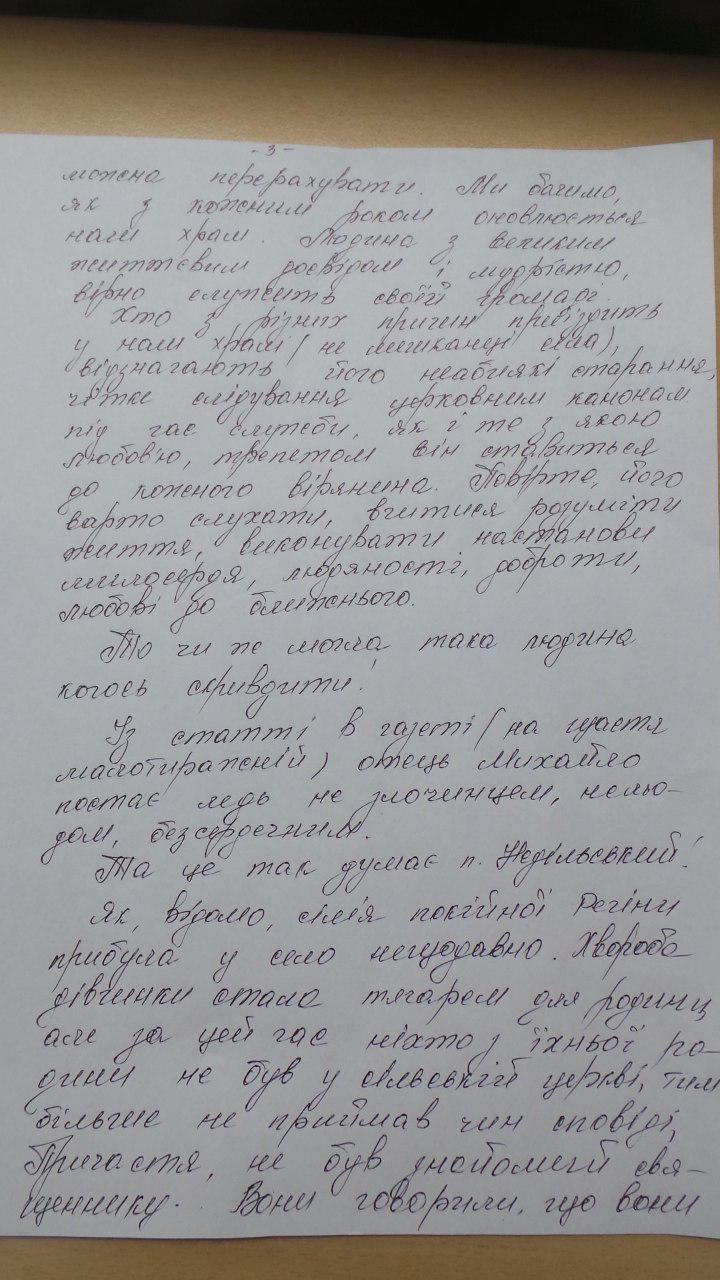 - 3 -
можна перерахувати. Ми бачимо,
як з кожним роком оновлюється
наш храм. Людина з великим
життєвим досвідом і мудрістю,
вірно служить своїй громаді.
Хто з різних причин приїздить
у наш храм (не мешканці села),
відзначають його неабиякі старання,
чітке слідування церковним канонам
під час служби, як і те з якою
любов'ю, трепетом він ставиться
до кожного вірянина. Повірте, його
варто слухати, вчитися розуміти
життя, виконувати настанови
милосердя, людяності, доброти,
любові до ближнього.
То чи ж могла така людина
когось скривдити!
Із статті в газеті (на щастя
малотиражній) отець Михайло
постає ледь не злочинцем, нелю-
дом, безсердечним.
Та це так думає п. Недільський!
Як, відомо, сім'я покійної Регіни
прибула у село нещодавно. Хвороба
дівчинки стала тягарем для родини,
але за цей час ніхто з їхньої ро-
дини не був у сільській церкві, тим
більше не приймав чин сповіді,
Причастя, не був знайомий свя-
щеннику. Вони говорили, що вони